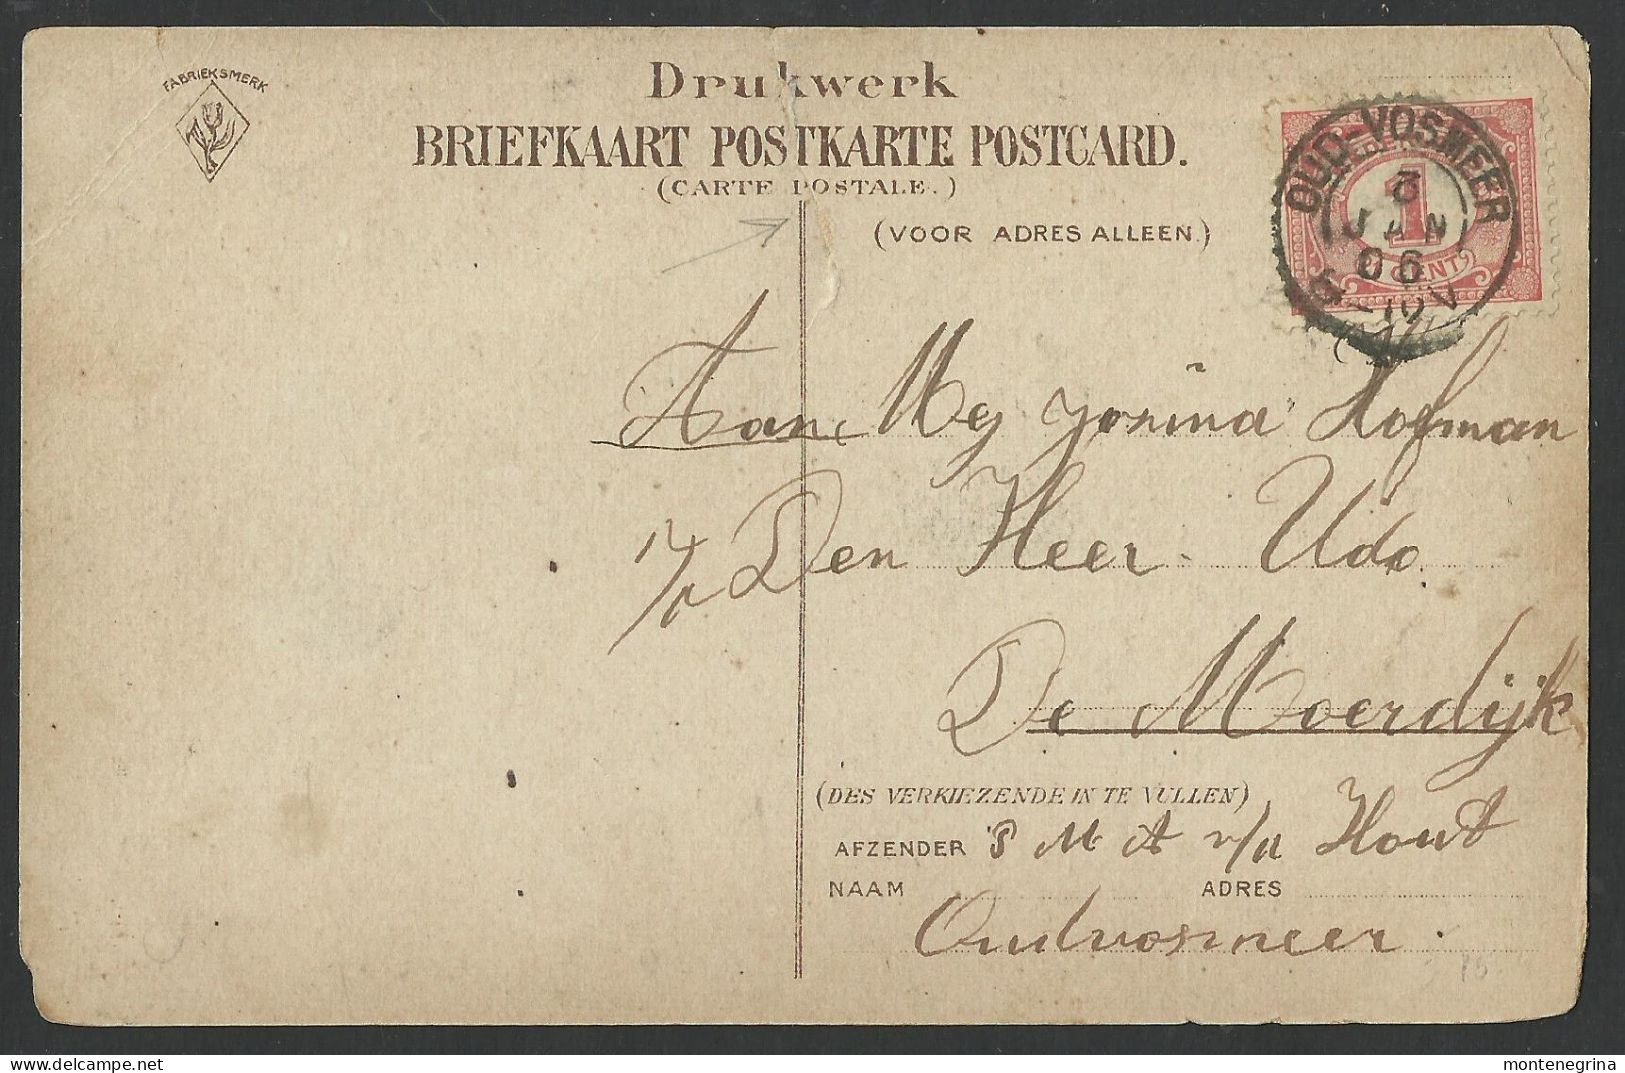 FABRIEKSMERK
Drukwerk
BRIEFKAART POSTKARTE POSTCARD.
(CARTE POSTALE.)
(VOOR ADRES ALLEEN.)
NEDERLAND
1
CENT
OUD-VOSMEER
2
JAN
06
Aan Mej Jozina Hofman
Den Heer Udo
De Moerdijk
(DES VERKIEZENDE IN TE VULLEN)
AFZENDER P M A v/d Hout
NAAM ADRES
Oudvosmeer.
delcampe.net
montenegrina